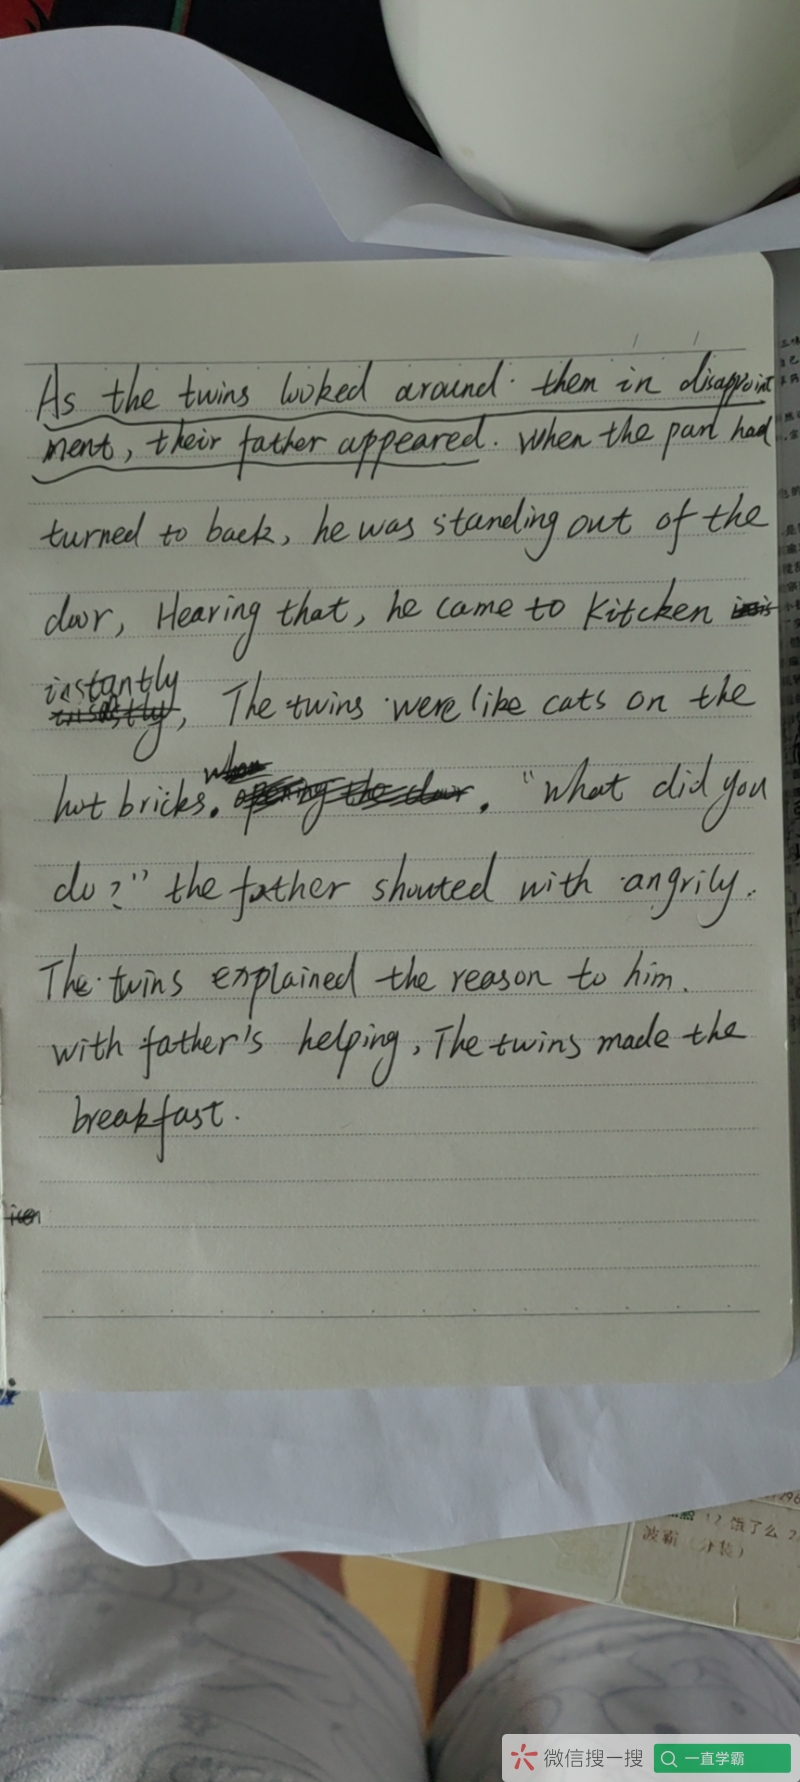 As the twins looked around them in disappoint
ment, their father appeared. When the pan had
turned to back, he was standing out of the
door, Hearing that, he came to kitchen
instantly, The twins were like cats on the
hot bricks. "What did you
do?" the father shouted with angrily.
The twins explained the reason to him.
with father's helping, The twins made the
breakfast.
饿了么
波霸（分装）
微信搜一搜
一直学霸